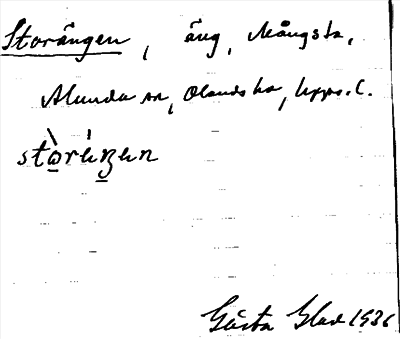 Storängen, äng, Mångsta,
Alunda sn, Olands hd, Upps. l.
stòräŋen
Gösta Glad 1936